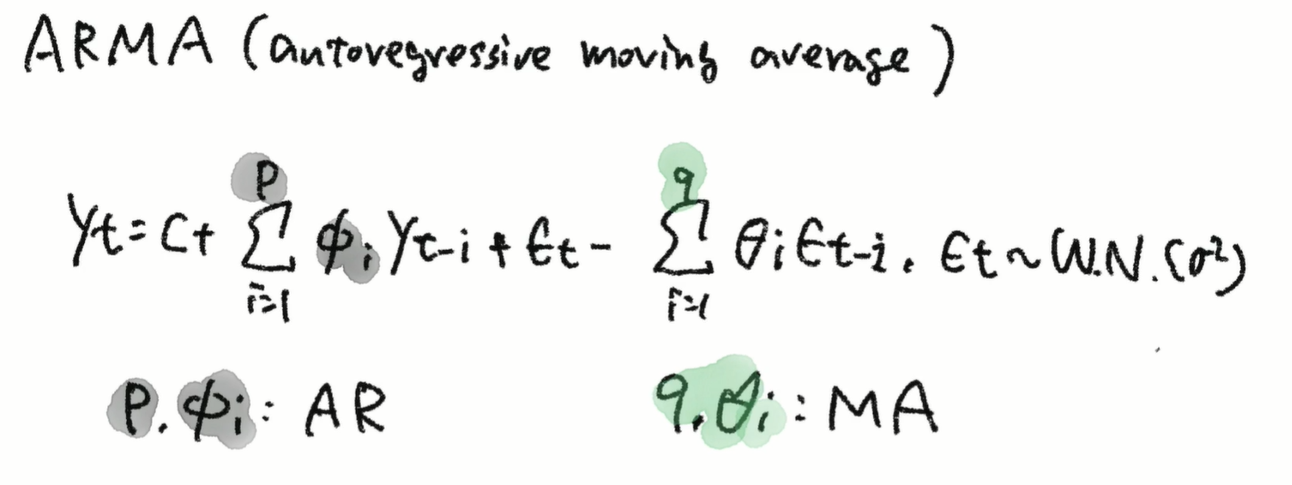 ARMA (autoregressive moving average)
yt = C + p∑i=1 ϕi yt-i + ϵt - q∑i=1 θi ϵt-i, ϵt ~ W.N.(σ²)
p, ϕi : AR q, θi : MA